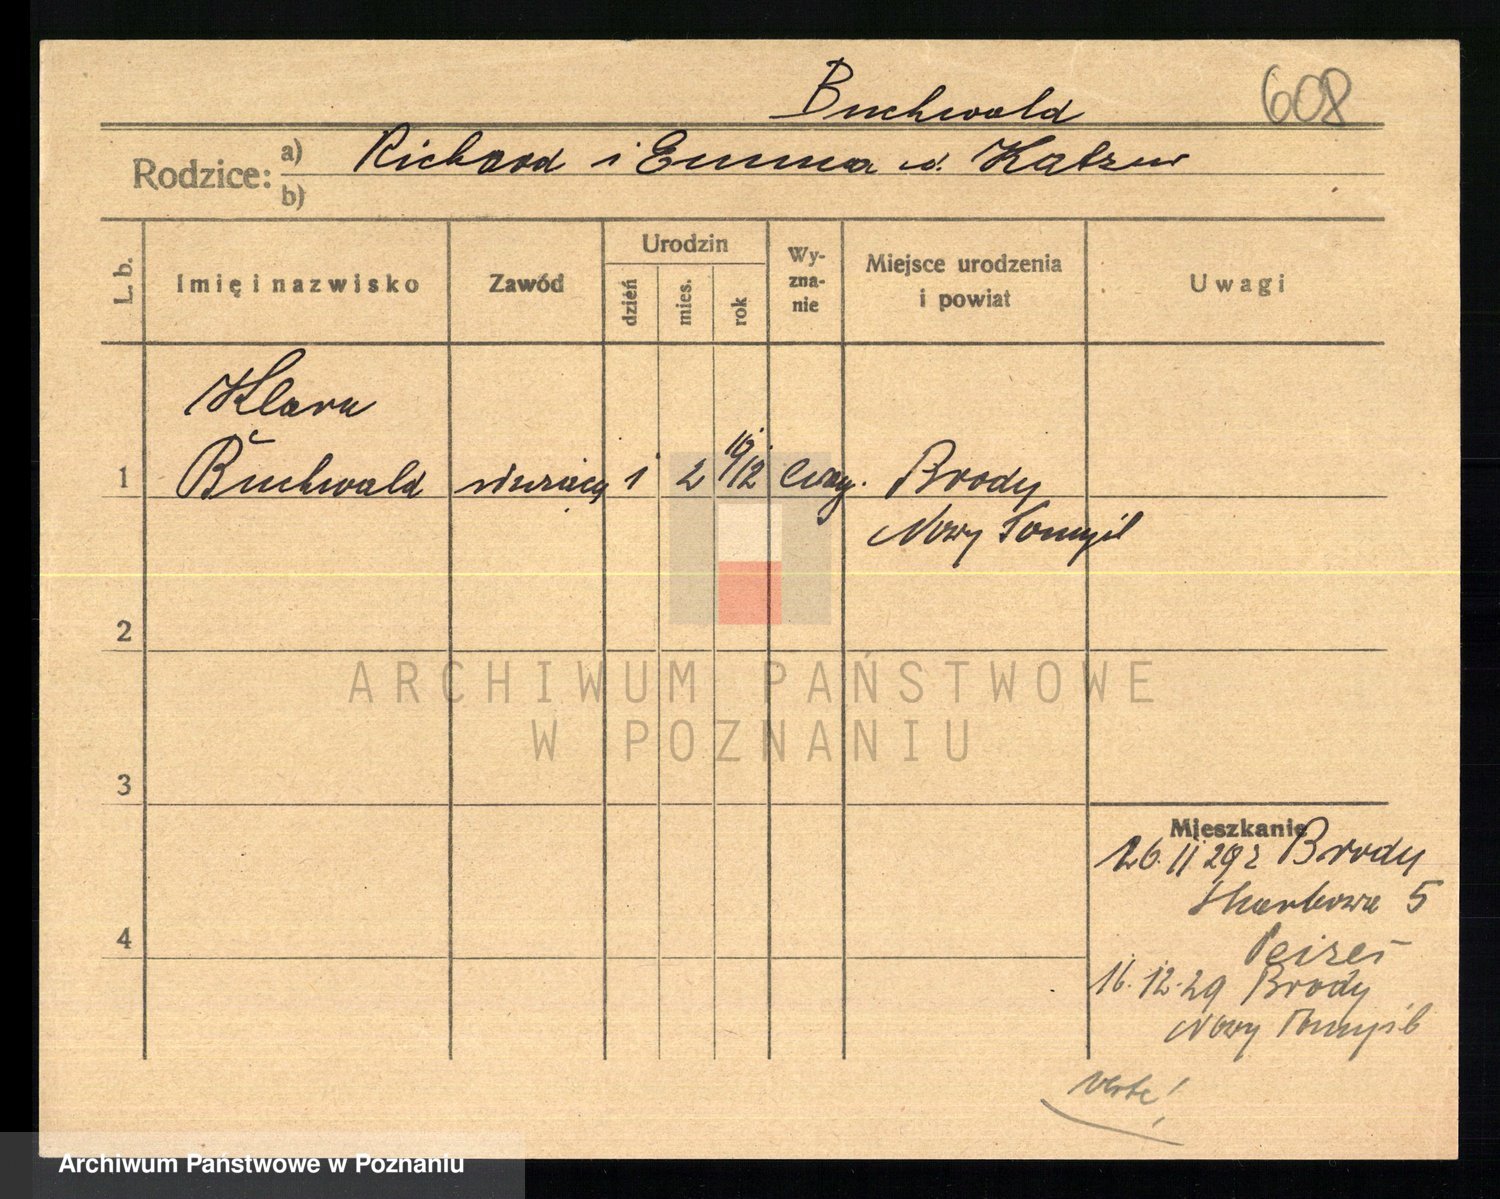 Buchwald
608
Rodzice: a) Richard i Emma d. Katzur
b)
L. b.
Imię i nazwisko
Zawód
Urodzin
dzień
mies.
rok
Wy-
zna-
nie
Miejsce urodzenia
i powiat
Uwagi
Klara
1 Buchwald służąca 1 2 1912 ewag. Brody
Nowy Tomyśl
2
3
4
Mieszkanie
26. 11 29 z Brody
Skarbowa 5
16. 12. 29 Brody
Nowy Tomyśl
verte!
ARCHIWUM PAŃSTWOWE
W POZNANIU
Archiwum Państwowe w Poznaniu